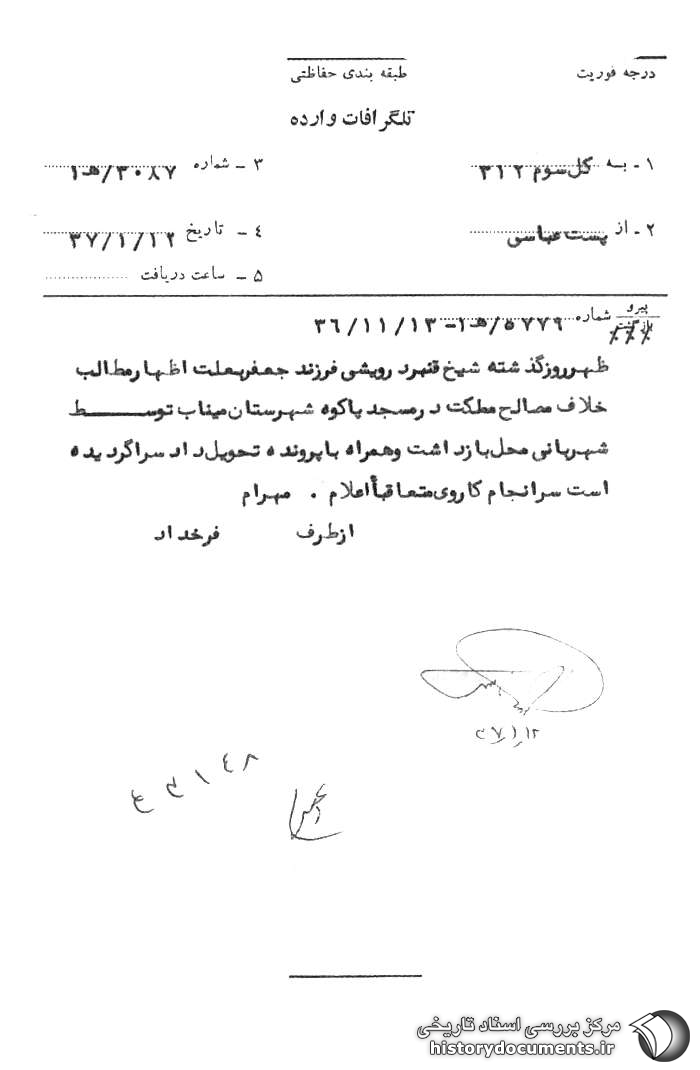 درجه فوریت
طبقه بندی حفاظتی
تلگرافات وارده
۱ - به کل سوم ۳۱۲
۳ - شماره ۳۰۸۷/هـ۱
۲ - از پست عباسی
۴ - تاریخ ۳۷/۱/۱۲
۵ - ساعت دریافت
پیرو
بازگشت شماره ۵۷۷۹/هـ۱-۳۶/۱۱/۱۳
ظهر روز گذشته شیخ قنبرد رویشی فرزند جعفر بعلت اظهار مطالب
خلاف مصالح مملکت در مسجد پاکوه شهرستان میناب توسط
شهربانی محل بازداشت و همراه با پرونده تحویل دادسرا گردیده
است سرانجام کار وی متعاقباً اعلام . مهرام
از طرف فرخداد
مرکز بررسی اسناد تاریخی
historydocuments.ir